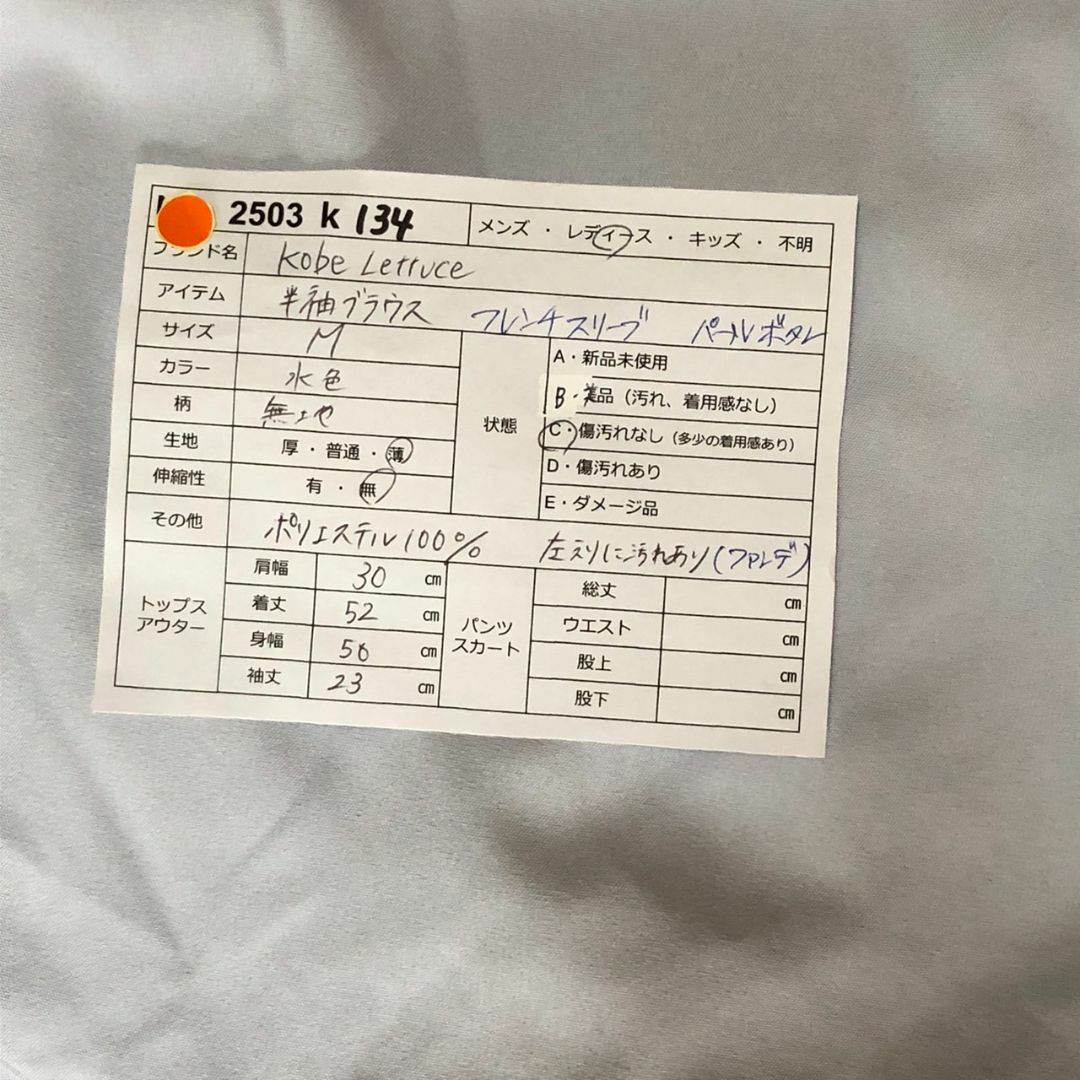 2503 k 134 メンズ ・ レディース ・ キッズ ・ 不明
ブランド名 Kobe Lettuce
アイテム 半袖ブラウス フレンチスリーブ パールボタン
サイズ M
カラー 水色
柄 無地
生地 厚 ・ 普通 ・ 薄
伸縮性 有 ・ 無
状態
A・新品未使用
B・美品（汚れ、着用感なし）
C・傷汚れなし（多少の着用感あり）
D・傷汚れあり
E・ダメージ品
その他 ポリエステル100% 左えりに汚れあり(ファンデ)
トップス
アウター
肩幅 30 cm
着丈 52 cm
身幅 56 cm
袖丈 23 cm
パンツ
スカート
総丈 cm
ウエスト cm
股上 cm
股下 cm